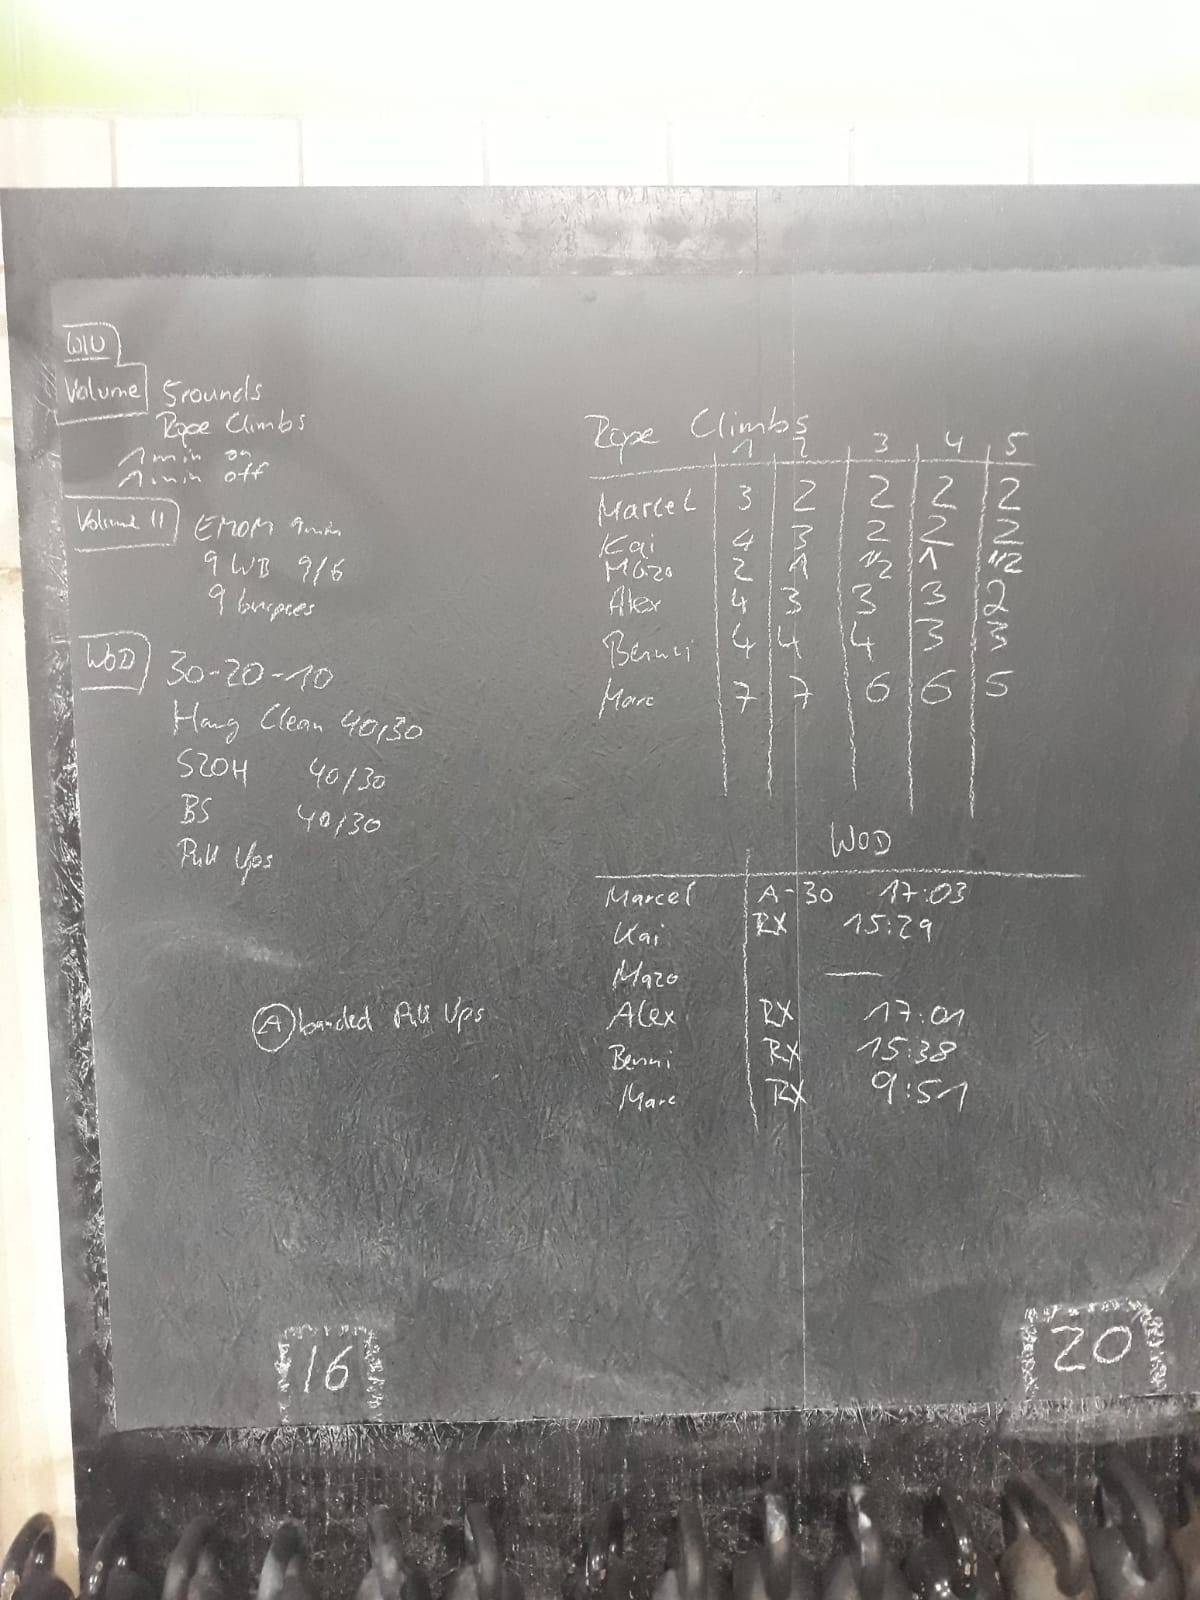 W/U
Volume 5 rounds
Rope Climbs
1 min on
1 min off
Volume II EMOM 9min
9 WB 9/6
9 burpees
WOD 30-20-10
Hang Clean 40/30
S2OH 40/30
BS 40/30
Pull Ups
A banded Pull Ups
16
Rope Climbs
1 2 3 4 5
Marcel 3 2 2 2 2
Kai 4 3 2 2 2
Mazo 2 1 1/2 1 1/2
Alex 4 3 3 3 2
Benni 4 4 4 3 3
Marc 7 7 6 6 5
WOD
Marcel A-30 17:03
Kai RX 15:29
Mazo —
Alex RX 17:01
Benni RX 15:38
Marc RX 9:51
20